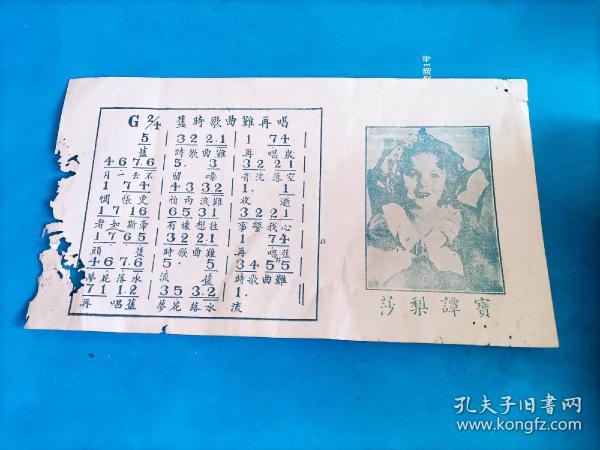 G 2/4 舊時歌曲難再唱
5 | 3 2 2.1 | 1 7 4
舊 時歌曲難 再 唱
4 6 7.6 | 5. 3 | 3 2 2 1
月一去不 留 嗓 音沈落空
1 7 4 | 4 3 3.2 | 1. 1
惆 悵更 怕雨流難 收 逝
1 7 1 6 | 6 5 3 1 | 3 2 2 1
者如斯牽 有懷想往 事驚我心
1 7 6 5 | 3 2 2.1 | 1 7 4
頭 舊 時歌曲難 再 唱
4 6 7.6 | 5. 5 | 3 4 #5 5
夢花落水 流 舊 時歌曲難
7 1 1.2 | 3 5 3.2 | 1.
再 唱舊 夢花落水 流
莎梨譚寶
孔夫子旧书网
www.kongfz.com